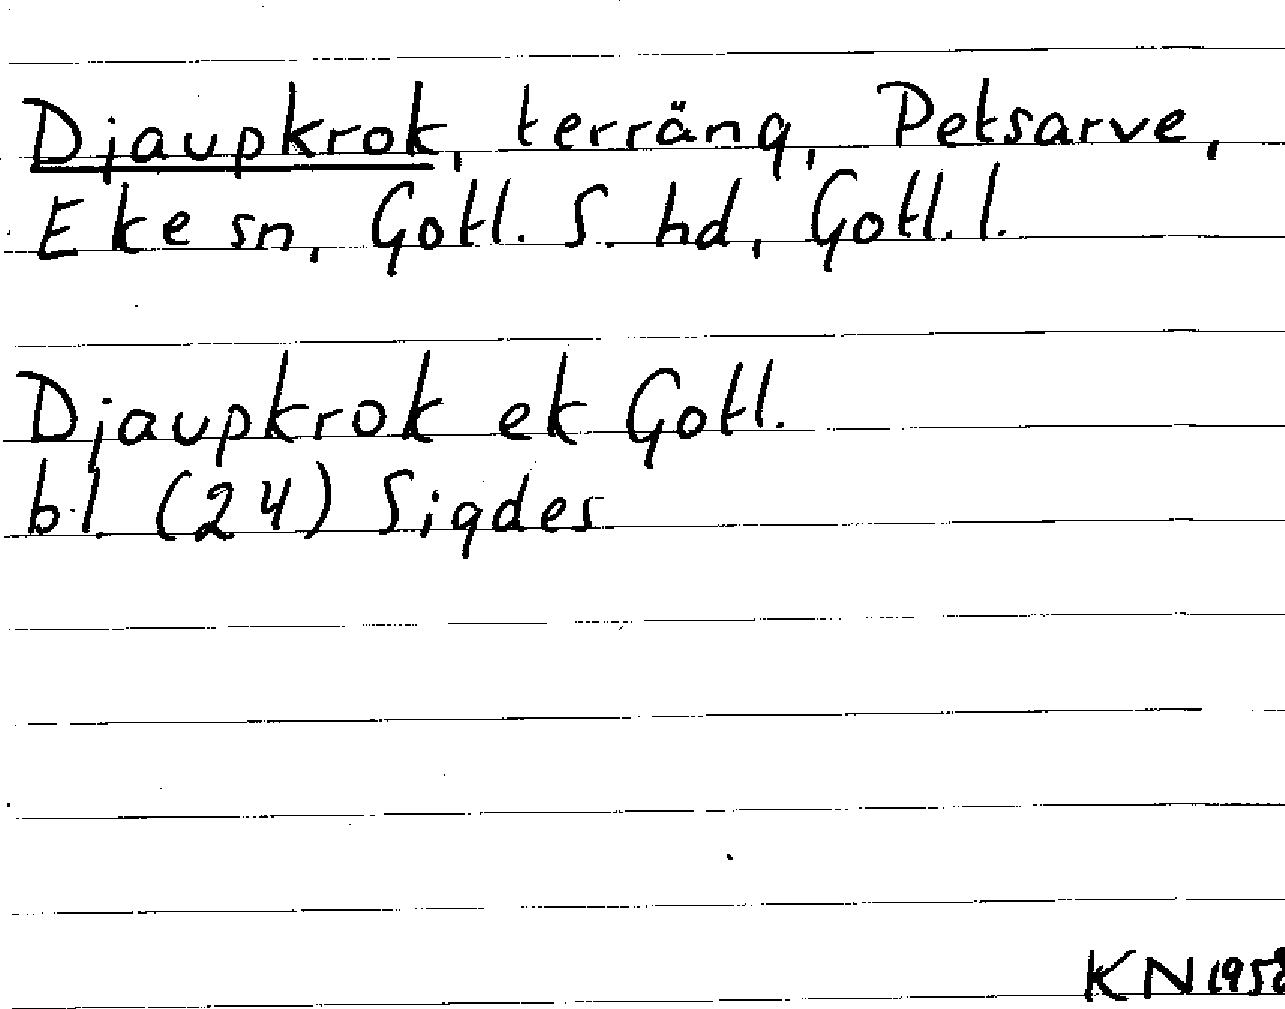 Djaupkrok, terräng, Petsarve,
Eke sn, Gotl. S. hd, Gotl. l.
Djaupkrok ek Gotl.
bl. (24) Sigdes
KN 1958